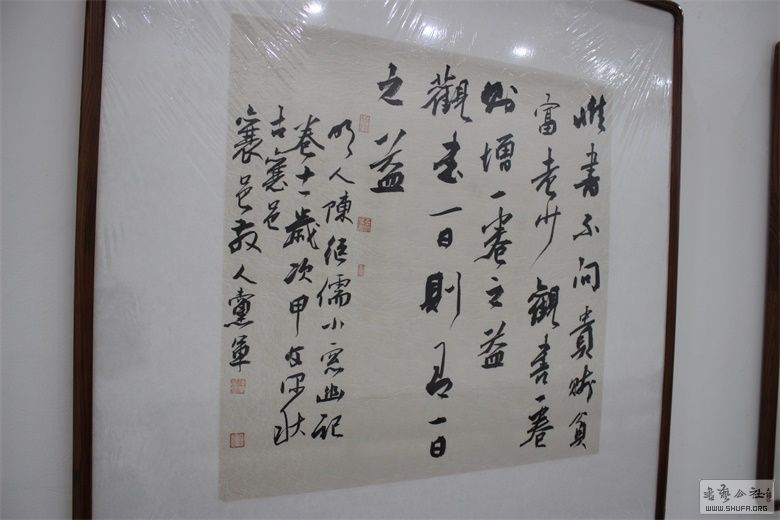 惟書不问貴賤貧
富老少觀書一卷
则增一卷之益
觀書一日則有一日
之益
明人陳继儒小窓幽記
卷十一歲次甲午深秋
古襄邑
襄邑散人黨軍
书艺公社
WWW.SHUFA.ORG